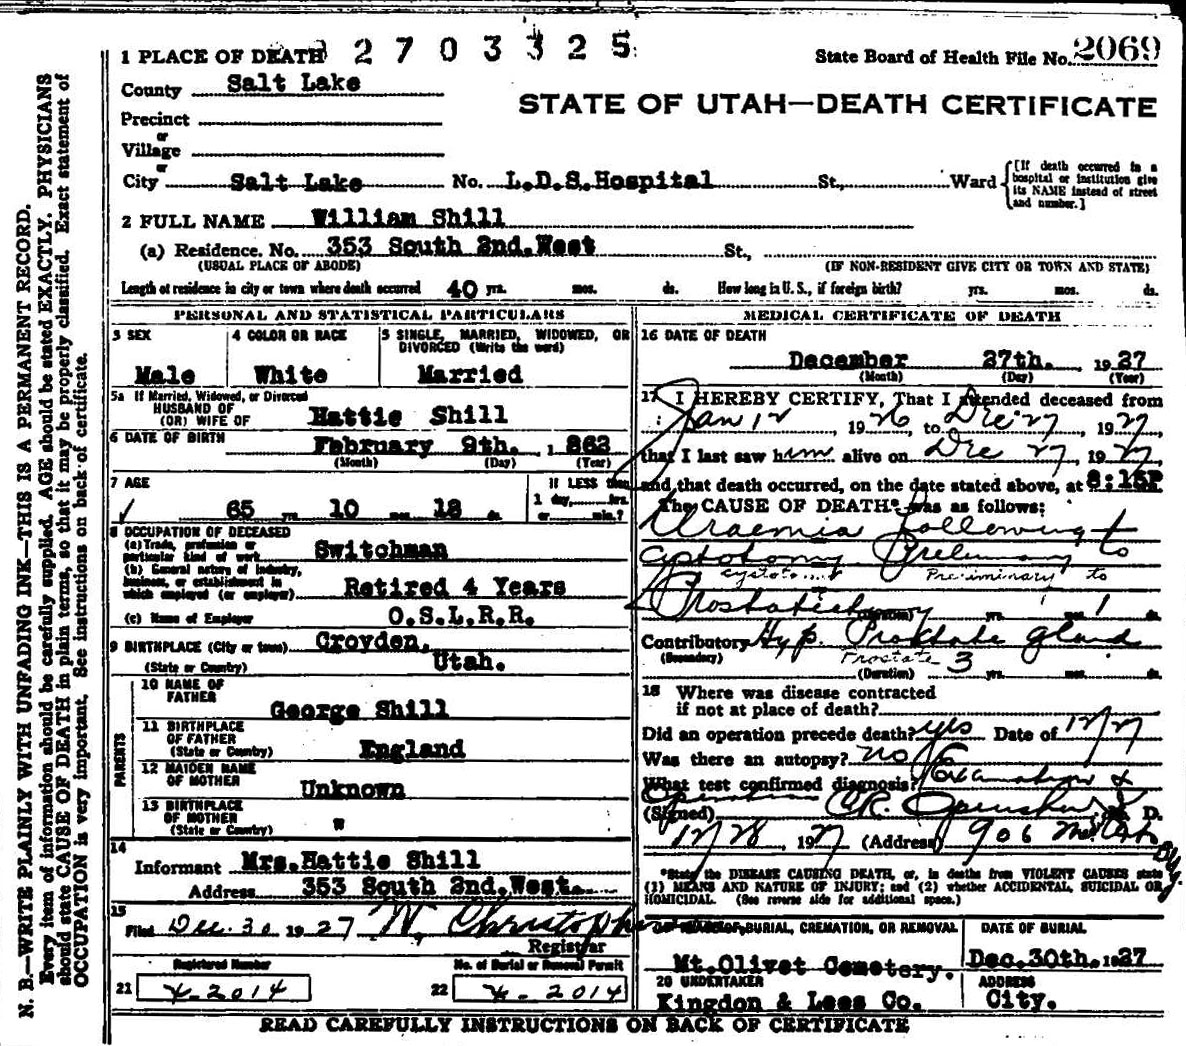 1 PLACE OF DEATH 2703325 State Board of Health File No. 2069
County Salt Lake
STATE OF UTAH—DEATH CERTIFICATE
Precinct
or
Village
or
City Salt Lake No. L.D.S. Hospital St., Ward
[If death occurred in a hospital or institution give its NAME instead of street and number.]
2 FULL NAME William Shill
(a) Residence. No. 353 South 2nd. West St.,
(USUAL PLACE OF ABODE) (IF NON-RESIDENT GIVE CITY OR TOWN AND STATE)
Length of residence in city or town where death occurred 40 yrs. mos. ds. How long in U. S., if foreign birth? yrs. mos. ds.
PERSONAL AND STATISTICAL PARTICULARS
3 SEX 4 COLOR OR RACE 5 SINGLE, MARRIED, WIDOWED, OR
DIVORCED (Write the word)
Male White Married
5a If Married, Widowed, or Divorced
HUSBAND OF
(OR) WIFE OF Hattie Shill
6 DATE OF BIRTH February 9th. 1 862
(Month) (Day) (Year)
7 AGE IF LESS than
1 day, hrs.
65 yrs 10 mos 18 ds. or min.?
8 OCCUPATION OF DECEASED
(a) Trade, profession or
particular kind of work Switchman
(b) General nature of industry,
business, or establishment in
which employed (or employer) Retired 4 Years
(c) Name of Employer O.S.L.R.R.
9 BIRTHPLACE (City or town) Croyden,
(State or Country) Utah.
PARENTS
10 NAME OF
FATHER George Shill
11 BIRTHPLACE
OF FATHER
(State or Country) England
12 MAIDEN NAME
OF MOTHER Unknown
13 BIRTHPLACE
OF MOTHER
(State or Country) "
14
Informant Mrs. Hattie Shill
Address 353 South 2nd. West.
15
Filed Dec. 30 1927 W. Christophe
Registrar
Registered Number No. of Burial or Removal Permit
21 4-2014 22 4-2014
MEDICAL CERTIFICATE OF DEATH
16 DATE OF DEATH
December 27th. 1927
(Month) (Day) (Year)
17 I HEREBY CERTIFY, That I attended deceased from
Jan 12, 1926, to Dec 27, 1927,
that I last saw him alive on Dec 27, 1927,
and that death occurred, on the date stated above, at 8:15P
The CAUSE OF DEATH* was as follows:
Uraemia following
cystotomy Preliminary to
Preliminary to
Prostatectomy yrs. mos. 1 ds.
Contributory Hyp. Prostate gland
(Secondary) Prostate 3
(Duration) yrs. mos. ds.
18 Where was disease contracted
if not at place of death?
Did an operation precede death? yes Date of 12/27
Was there an autopsy? no
What test confirmed diagnosis? Examination &
Operation
(Signed) M. D.
12/28, 1927 (Address) 906
*State the DISEASE CAUSING DEATH, or, in deaths from VIOLENT CAUSES state
(1) MEANS AND NATURE OF INJURY; and (2) whether ACCIDENTAL, SUICIDAL OR
HOMICIDAL. (See reverse side for additional space.)
BURIAL, CREMATION, OR REMOVAL DATE OF BURIAL
Mt. Olivet Cemetery. Dec. 30th. 1927
20 UNDERTAKER ADDRESS
Kingdon & Lees Co. City.
READ CAREFULLY INSTRUCTIONS ON BACK OF CERTIFICATE
N. B.—WRITE PLAINLY WITH UNFADING INK—THIS IS A PERMANENT RECORD.
Every item of information should be carefully supplied. AGE should be stated EXACTLY. PHYSICIANS
should state CAUSE OF DEATH in plain terms, so that it may be properly classified. Exact statement of
OCCUPATION is very important. See instructions on back of certificate.